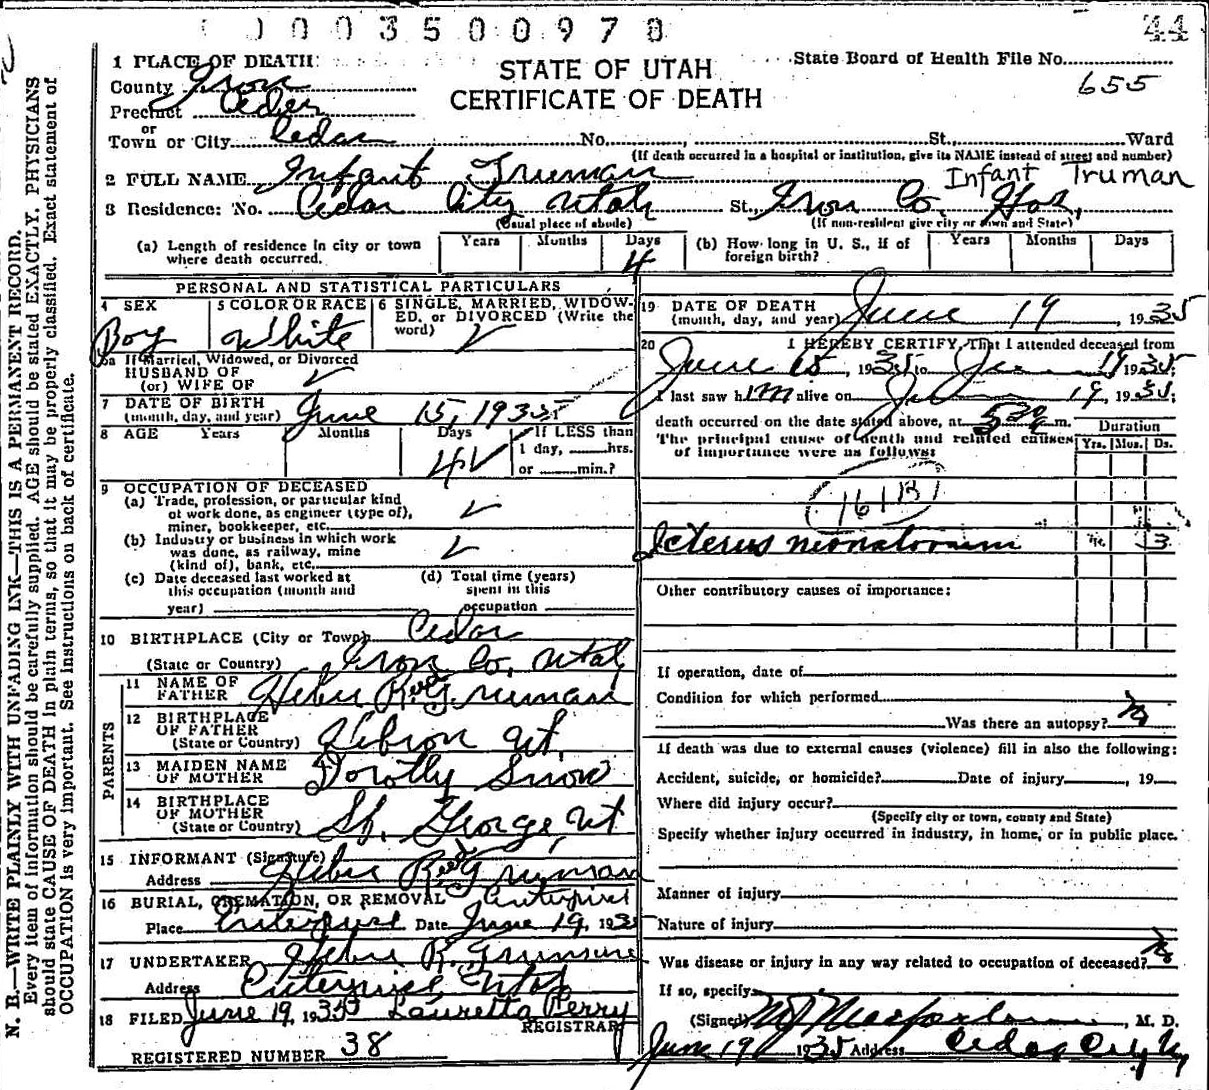 0003500970
44
1 PLACE OF DEATH:
State Board of Health File No.
655
STATE OF UTAH
CERTIFICATE OF DEATH
County Iron
Precinct Cedar
or
Town or City Cedar No. St. Ward
(If death occurred in a hospital or institution, give its NAME instead of street and number)
2 FULL NAME Infant Truman
Infant Truman
3 Residence: No. Cedar City Utah St., Iron Co. Hos,
(Usual place of abode) (If non-resident give city or town and State)
(a) Length of residence in city or town where death occurred. Years Months Days 4
(b) How long in U. S., if of foreign birth? Years Months Days
PERSONAL AND STATISTICAL PARTICULARS
4 SEX Boy
5 COLOR OR RACE White
6 SINGLE, MARRIED, WIDOW-
ED, or DIVORCED (Write the
word)
5a If Married, Widowed, or Divorced
HUSBAND OF
(or) WIFE OF
7 DATE OF BIRTH
(month, day, and year) June 15, 1935
8 AGE Years Months Days 4 If LESS than
1 day, hrs.
or min.?
9 OCCUPATION OF DECEASED
(a) Trade, profession, or particular kind
of work done, as engineer (type of),
miner, bookkeeper, etc.
(b) Industry or business in which work
was done, as railway, mine
(kind of), bank, etc.
(c) Date deceased last worked at
this occupation (month and
year)
(d) Total time (years)
spent in this
occupation
10 BIRTHPLACE (City or Town) Cedar
(State or Country) Iron Co, Utah
PARENTS
11 NAME OF
FATHER Heber Reed Truman
12 BIRTHPLACE
OF FATHER
(State or Country) Hebron Ut.
13 MAIDEN NAME
OF MOTHER Dorothy Snow
14 BIRTHPLACE
OF MOTHER
(State or Country) St. George, Ut
15 INFORMANT (Signature) Heber Reed Truman
Address
16 BURIAL, CREMATION, OR REMOVAL Enterprise
Place Enterprise Date June 19, 1935
17 UNDERTAKER Heber R. Truman
Address Enterprise, Utah
18 FILED June 19, 1935 Lauretta Perry
REGISTRAR
REGISTERED NUMBER 38
19 DATE OF DEATH
(month, day, and year) June 19, 1935
20 I HEREBY CERTIFY, That I attended deceased from
June 15, 1935 to June 19 1935;
I last saw him alive on 19, 1935;
death occurred on the date stated above, at 530 m.
The principal cause of death and related causes
of importance were as follows:
Duration
Yrs. Mos. Ds.
161B
Icterus neonatorum 3
Other contributory causes of importance:
If operation, date of
Condition for which performed
Was there an autopsy?
If death was due to external causes (violence) fill in also the following:
Accident, suicide, or homicide? Date of injury , 19
Where did injury occur?
(Specify city or town, county and State)
Specify whether injury occurred in industry, in home, or in public place.
Manner of injury
Nature of injury
Was disease or injury in any way related to occupation of deceased?
If so, specify
(Signed) M J Macfarlane, M. D.
June 19 1935 Address Cedar City U
N. B.—WRITE PLAINLY WITH UNFADING INK—THIS IS A PERMANENT RECORD.
Every item of information should be carefully supplied. AGE should be stated EXACTLY. PHYSICIANS
should state CAUSE OF DEATH in plain terms, so that it may be properly classified. Exact statement of
OCCUPATION is very important. See instructions on back of certificate.